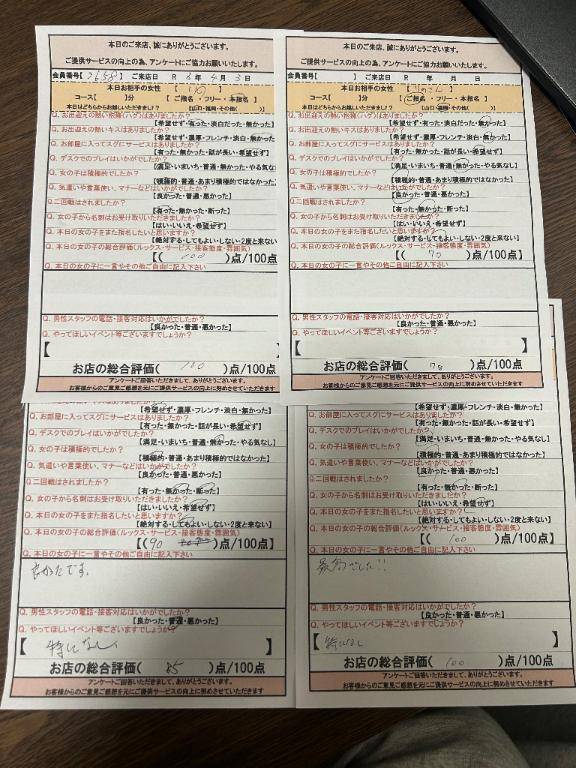 本日のご来店、誠にありがとうございます。
ご提供サービスの向上の為、アンケートにご協力お願いいたします。
会員番号【2658】 ご来店日 R 6年 4月 3日
本日お相手の女性 【 】
コース【 】分 【ご指名・フリー・本指名】
本日はどちらからお越しいただきましたか? 【山口・福岡・その他( )】
Q. お出迎えの熱い抱擁(ハグ)はありましたか?
【希望せず・有った・淡白だった・無かった】
Q. お出迎えの熱いキスはありましたか?
【希望せず・濃厚・フレンチ・淡白・無かった】
Q. お部屋に入ってスグにサービスはありましたか?
【有った・無かった・話が長い・希望せず】
Q. デスクでのプレイはいかがでしたか?
【満足・いまいち・普通・無かった・やる気なし】
Q. 女の子は積極的でしたか?
【積極的・普通・あまり積極的ではなかった】
Q. 気遣いや言葉使い、マナーなどはいかがでしたか?
【良かった・普通・悪かった】
Q. 二回戦はされましたか?
【有った・無かった・断った】
Q. 女の子から名刺はお受け取りいただきましたか?
【はい・いいえ・希望せず】
Q. 本日の女の子をまた指名したいと思いますか?
【絶対する・してもよい・しない・2度と来ない】
Q. 本日の女の子の総合評価(ルックス・サービス・接客態度・雰囲気)
【( 100 )点/100点】
Q. 本日の女の子に一言やその他ご自由に記入下さい
Q. 男性スタッフの電話・接客対応はいかがでしたか?
【良かった・普通・悪かった】
Q. やってほしいイベント等ございますでしょうか?
【 】
お店の総合評価( 100 )点/100点
アンケートご回答いただきまして、ありがとうございます。
お客様からのご意見ご感想を元にご提供サービスの向上に努めさせていただきます
本日のご来店、誠にありがとうございます。
ご提供サービスの向上の為、アンケートにご協力お願いいたします。
会員番号【 】 ご来店日 R 年 月 日
本日お相手の女性 【 】
コース【 】分 【ご指名・フリー・本指名】
本日はどちらからお越しいただきましたか? 【山口・福岡・その他( )】
Q. お出迎えの熱い抱擁(ハグ)はありましたか?
【希望せず・有った・淡白だった・無かった】
Q. お出迎えの熱いキスはありましたか?
【希望せず・濃厚・フレンチ・淡白・無かった】
Q. お部屋に入ってスグにサービスはありましたか?
【有った・無かった・話が長い・希望せず】
Q. デスクでのプレイはいかがでしたか?
【満足・いまいち・普通・無かった・やる気なし】
Q. 女の子は積極的でしたか?
【積極的・普通・あまり積極的ではなかった】
Q. 気遣いや言葉使い、マナーなどはいかがでしたか?
【良かった・普通・悪かった】
Q. 二回戦はされましたか?
【有った・無かった・断った】
Q. 女の子から名刺はお受け取りいただきましたか?
【はい・いいえ・希望せず】
Q. 本日の女の子をまた指名したいと思いますか?
【絶対する・してもよい・しない・2度と来ない】
Q. 本日の女の子の総合評価(ルックス・サービス・接客態度・雰囲気)
【( 70 )点/100点】
Q. 本日の女の子に一言やその他ご自由に記入下さい
Q. 男性スタッフの電話・接客対応はいかがでしたか?
【良かった・普通・悪かった】
Q. やってほしいイベント等ございますでしょうか?
【 】
お店の総合評価( 70 )点/100点
アンケートご回答いただきまして、ありがとうございます。
お客様からのご意見ご感想を元にご提供サービスの向上に努めさせていただきます
【希望せず・濃厚・フレンチ・淡白・無かった】
Q. お部屋に入ってスグにサービスはありましたか?
【有った・無かった・話が長い・希望せず】
Q. デスクでのプレイはいかがでしたか?
【満足・いまいち・普通・無かった・やる気なし】
Q. 女の子は積極的でしたか?
【積極的・普通・あまり積極的ではなかった】
Q. 気遣いや言葉使い、マナーなどはいかがでしたか?
【良かった・普通・悪かった】
Q. 二回戦はされましたか?
【有った・無かった・断った】
Q. 女の子から名刺はお受け取りいただきましたか?
【はい・いいえ・希望せず】
Q. 本日の女の子をまた指名したいと思いますか?
【絶対する・してもよい・しない・2度と来ない】
Q. 本日の女の子の総合評価(ルックス・サービス・接客態度・雰囲気)
【( 90 )点/100点】
Q. 本日の女の子に一言やその他ご自由に記入下さい
良かたです。
Q. 男性スタッフの電話・接客対応はいかがでしたか?
【良かった・普通・悪かった】
Q. やってほしいイベント等ございますでしょうか?
【 特になし 】
お店の総合評価( 85 )点/100点
アンケートご回答いただきまして、ありがとうございます。
お客様からのご意見ご感想を元にご提供サービスの向上に努めさせていただきます
【希望せず・濃厚・フレンチ・淡白・無かった】
Q. お部屋に入ってスグにサービスはありましたか?
【有った・無かった・話が長い・希望せず】
Q. デスクでのプレイはいかがでしたか?
【満足・いまいち・普通・無かった・やる気なし】
Q. 女の子は積極的でしたか?
【積極的・普通・あまり積極的ではなかった】
Q. 気遣いや言葉使い、マナーなどはいかがでしたか?
【良かった・普通・悪かった】
Q. 二回戦はされましたか?
【有った・無かった・断った】
Q. 女の子から名刺はお受け取りいただきましたか?
【はい・いいえ・希望せず】
Q. 本日の女の子をまた指名したいと思いますか?
【絶対する・してもよい・しない・2度と来ない】
Q. 本日の女の子の総合評価(ルックス・サービス・接客態度・雰囲気)
【( 100 )点/100点】
Q. 本日の女の子に一言やその他ご自由に記入下さい
最高でした!!
Q. 男性スタッフの電話・接客対応はいかがでしたか?
【良かった・普通・悪かった】
Q. やってほしいイベント等ございますでしょうか?
【 特になし 】
お店の総合評価( 100 )点/100点
アンケートご回答いただきまして、ありがとうございます。
お客様からのご意見ご感想を元にご提供サービスの向上に努めさせていただきます